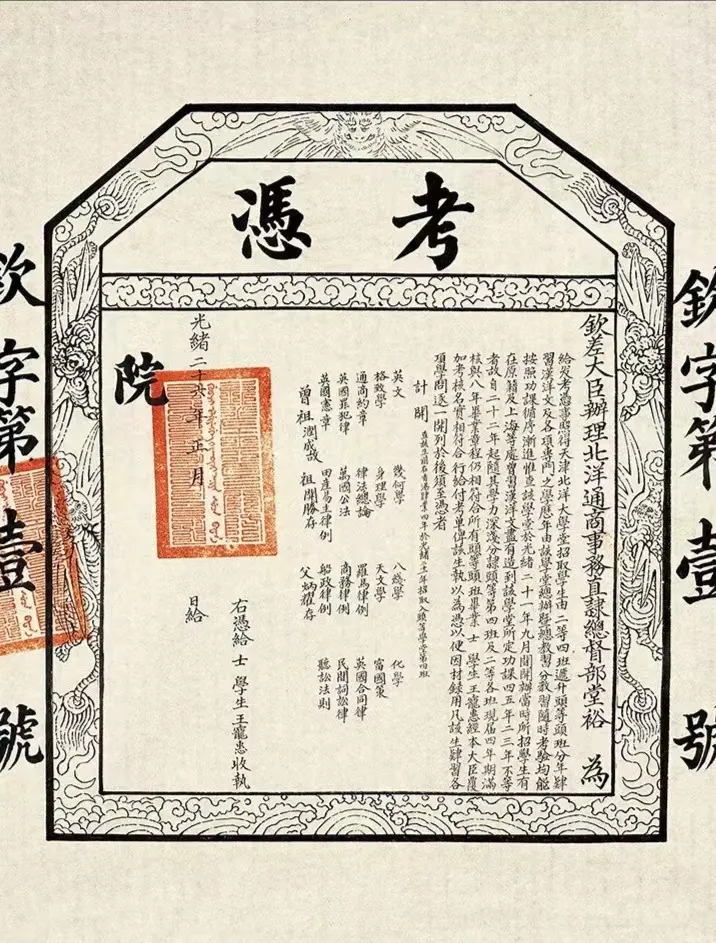 考憑
欽字第壹號
欽差大臣辦理北洋通商事務直隸總督部堂裕 為
給發考憑事照得天津北洋大學堂招取學生由二等四班遞升頭等頭班分年肄
習漢洋文及各項專門之學歷年由該學堂總辦暨總教習分教習隨時考驗均能
按照功課循序漸進惟查該學堂於光緒二十一年九月間開辦當時所招學生有
在原籍及上海等處曾習漢洋文蓋有造到該學堂所定功課四五年二三年不等
者故自二十二年起隨其學力深淺分隸頭等第四班及二等各班現屆四年期滿
核與八年畢業章程仍相符合所有頭等頭班畢業士 學生王寵惠經本大臣覆
加考核名實相符合行給付考單俾該生執以為憑以便因材録用凡該生肄習各
項學問逐一開列於後須至憑者
計開
英文 幾何學 八綫學 化學
格致學 身理學 天文學 富國策
通商約章 律法總論 羅馬律例 英國合同律
英國罪犯律 萬國公法 商務律例 民間詞訟律
英國憲章 田產易主律例 船政律例 聽訟法則
曾祖潤成故 祖開勝存 父炳耀存
右憑給 士 學生王寵惠收執
光緒二十六年正月 日給
院
欽字第壹號